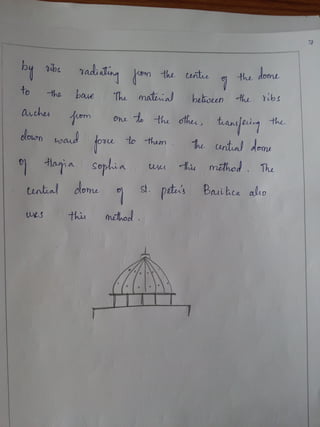 by ribs radiating from the centre of the dome
to the base The material between the ribs
arches from one to the other, transfering the
down ward force to them. The central dome
of Hagia sophia uses this method. The
central dome of st. peter's Basilica also
uses this method.